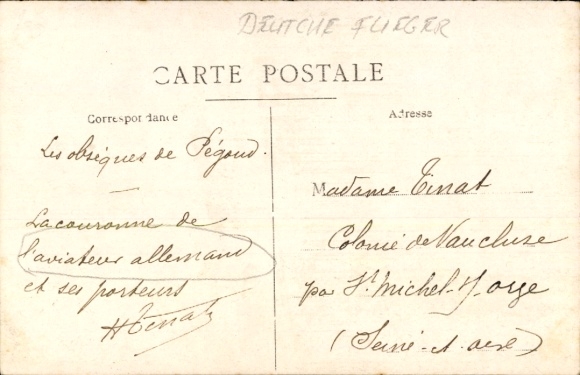 DEUTCHE FLIEGER
CARTE POSTALE
Correspondance
Les obsèques de Pégoud.
La couronne de
l'aviateur allemand
et ses porteurs
HTinat
Adresse
Madame Tinat
Colonie de Vaucluse
par St Michel-s/-orge
(Seine-et-oise)